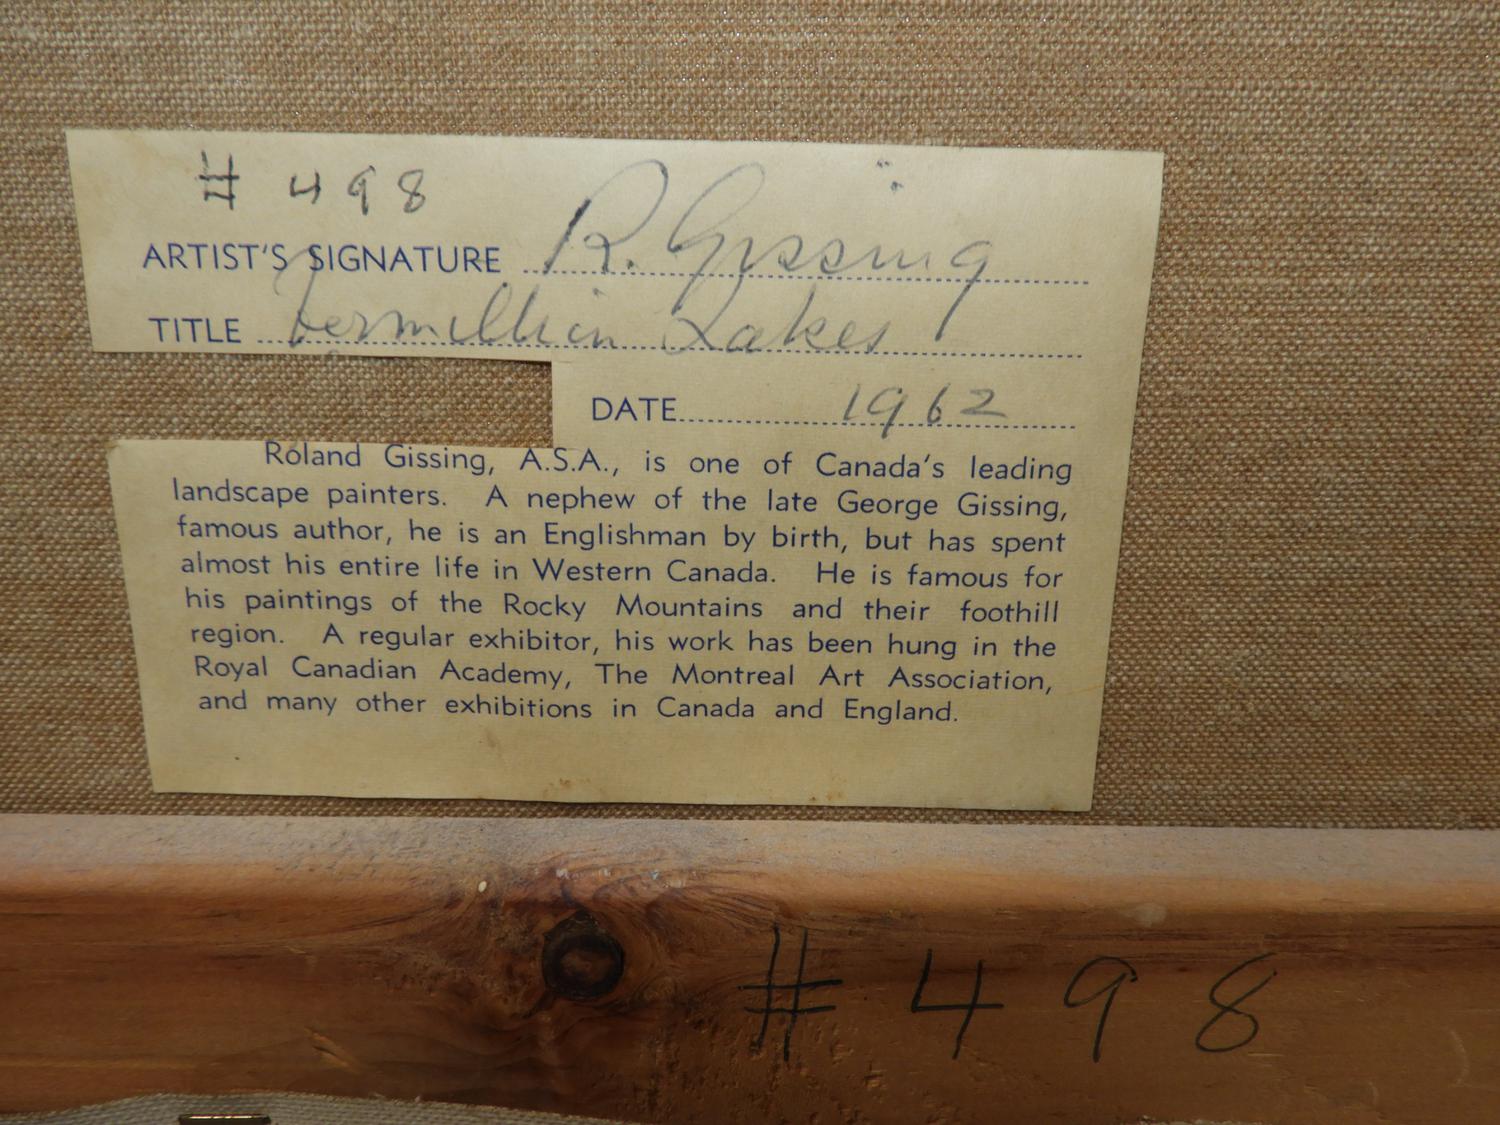 # 498
ARTIST'S SIGNATURE R. Gissing
TITLE Vermillion Lakes
DATE 1962
Roland Gissing, A.S.A., is one of Canada's leading
landscape painters. A nephew of the late George Gissing,
famous author, he is an Englishman by birth, but has spent
almost his entire life in Western Canada. He is famous for
his paintings of the Rocky Mountains and their foothill
region. A regular exhibitor, his work has been hung in the
Royal Canadian Academy, The Montreal Art Association,
and many other exhibitions in Canada and England.
# 498